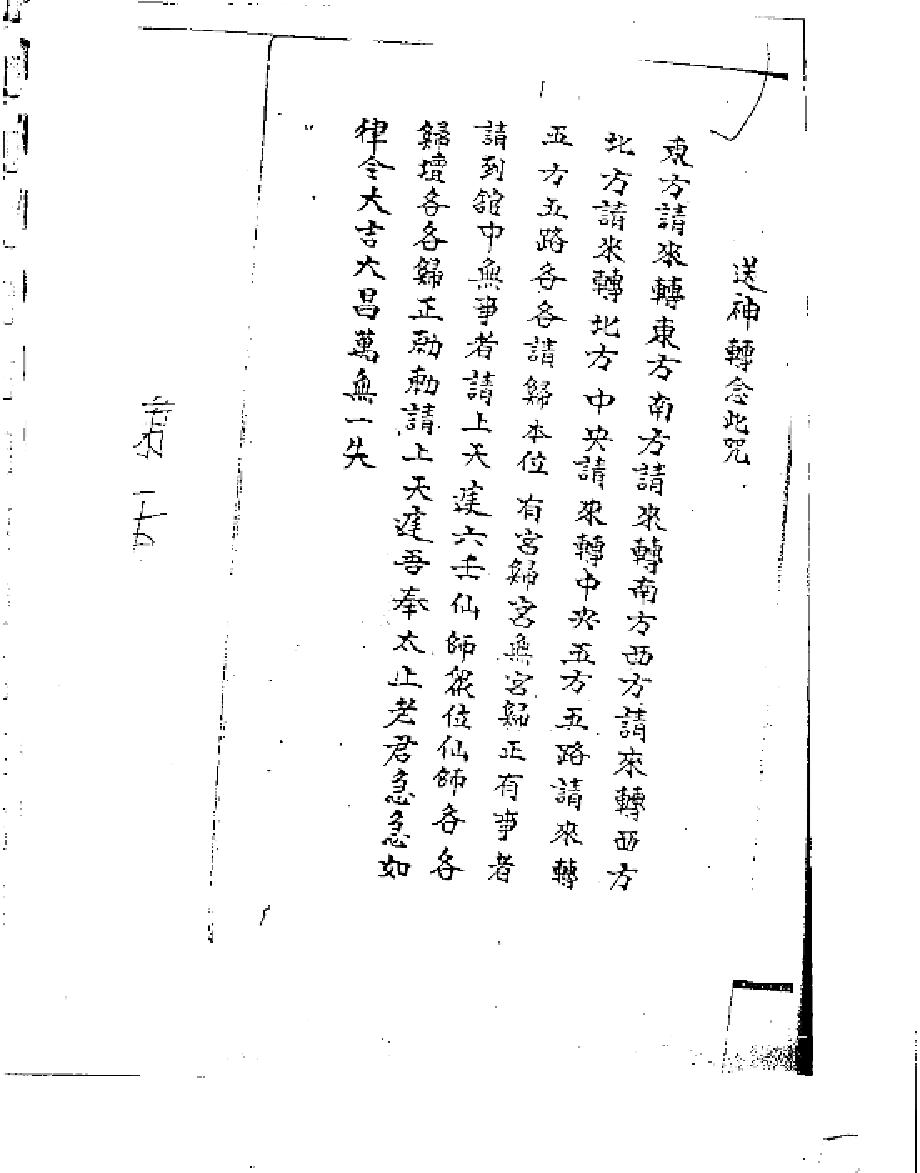 送神轉念此咒
東方請來轉東方南方請來轉南方西方請來轉西方
北方請來轉北方中央請來轉中央五方五路請來轉
五方五路各各請歸本位有宮歸宮無宮歸正有事者
請到舘中無事者請上天廷六壬仙師眾位仙師各各
歸壇各各歸正勅勅請上天廷吾奉太上老君急急如
律令大吉大昌萬無一失